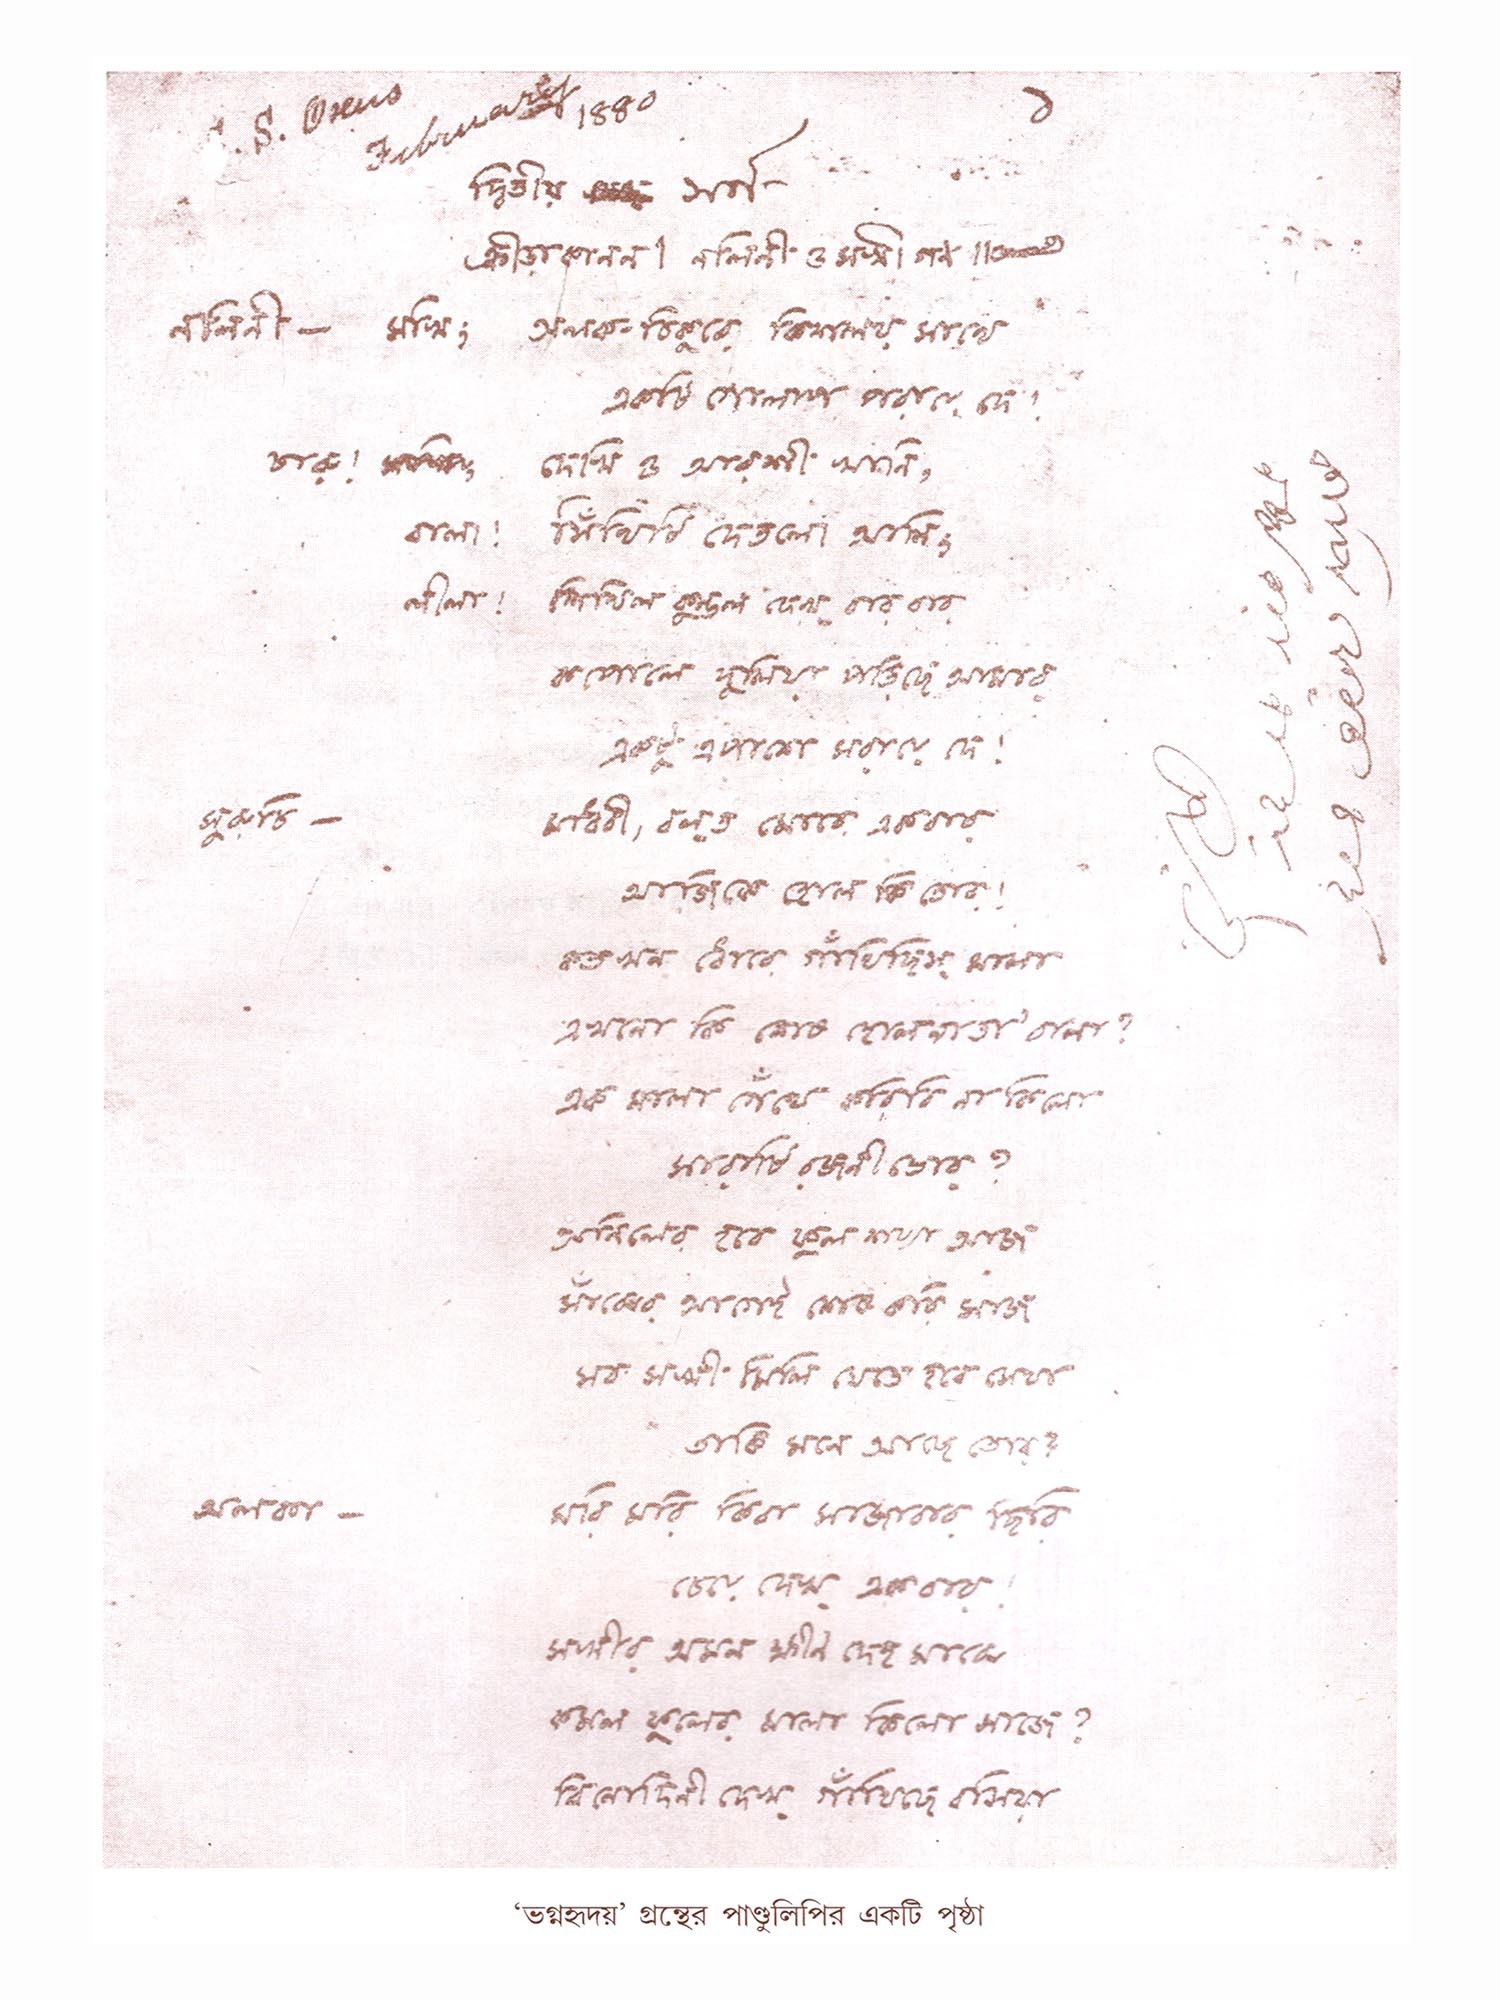 S. Oxus
February 1880
১
দ্বিতীয় সর্গ
ক্রীড়াকানন। নলিনী ও সখীগণ॥
নলিনী — সখি, অলক-চিকুরে কিশলয় সাথে
একটি গোলাপ পরায়ে দে!
চারু! দেখি ও আরশী খানি,
বালা! সিঁথিটি দেতলো আনি,
লীলা! শিথিল কুন্তল দেখ্ বার বার
কপোলে দুলিয়া পড়িছে আমার
একটু এপাশে সরায়ে দে!
সুরুচি — মাধবী, বল্ ত মোরে একবার
আজিকে হোল কি তোর!
কতখন ধোরে গাঁথিছিস্ মালা
এখনো কি শেষ হোলনাতা' বালা?
এক মালা গেঁথে করিবি না কিলো
সারাটি রজনী ভোর?
অনিলের হবে ফুল শয্যা আজ
সাঁঝের আগেই শেষ করি সাজ
সব সখী মিলি যেতে হবে সেথা
তাকি মনে আছে তোর?
অলকা — মরি মরি কিবা সাজাবার ছিরি
চেয়ে দেখ্ একবার!
সখীর অমন ক্ষীণ দেহ মাঝে
কমল ফুলের মালা কিলো সাজে?
বিনোদিনী দেখ্ গাঁথিছে বসিয়া
‘ভগ্নহৃদয়’ গ্রন্থের পাণ্ডুলিপির একটি পৃষ্ঠা